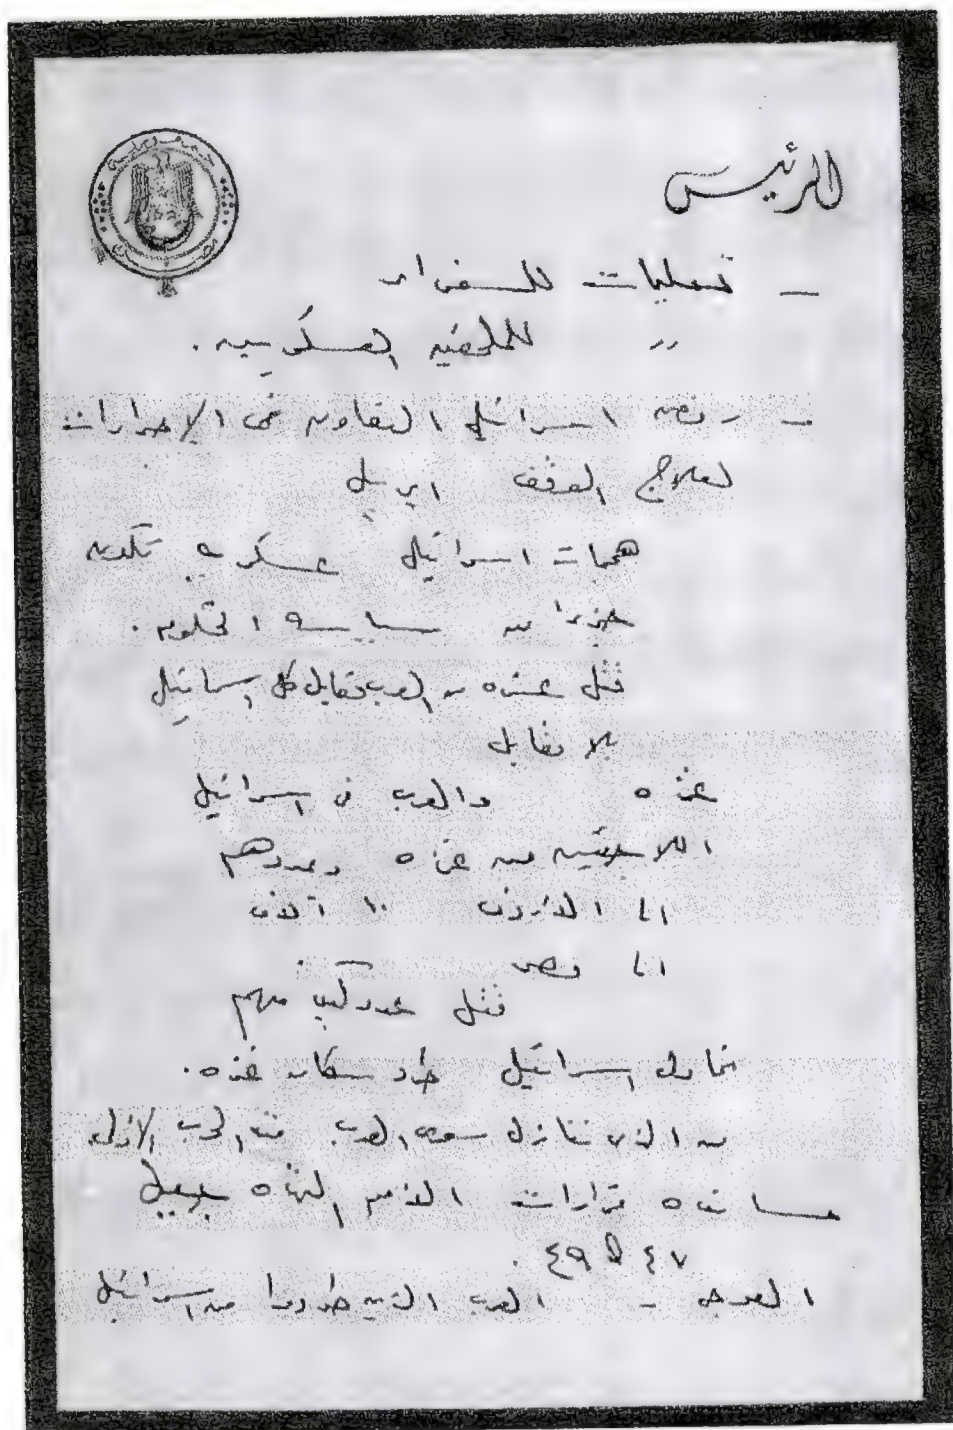 الرئيس
جمهورية مصر
- تعليمات للسفراء
" للملحقين العسكريين.
- رفض اسرائيل التعاون فى الإجراءات
لعلاج الموقف ابريل
هجمات اسرائيل عسكريه تكون
جزءا من سياسة الحكومه.
قتل عشره من العرب مقابل كل اسرائيلى
بلا مقابل
غزه والعرب فى اسرائيل
اللاجئين من غزه وعددهم
اما الاردن ١٠ آلاف
اما مصر -
قتل عدد كبير منهم
تحاول اسرائيل طرد سكان غزه.
من الذى تنازل سوى العرب منذ الحرب الاولى
مسانده قرارات الامم المتحده
٤٧ الى ٤٩.
العوجه - العرب الذين طردوا من اسرائيل